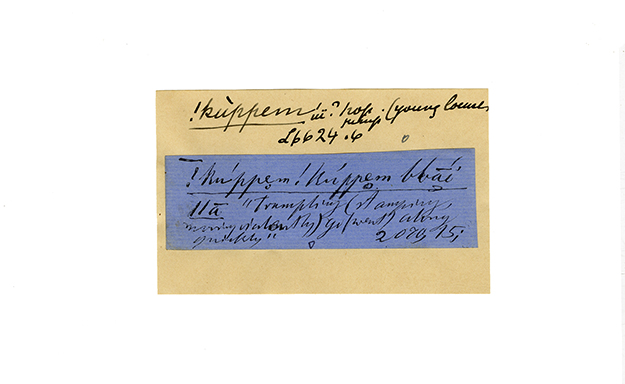 !kùppem !ĩĩ? hop. (young locusts
jump
L6624.6
!kúppem !kúppem bbāi
||ā "Trampling (stamping,
moving violently) go (went) along
quickly" 2079, 15;